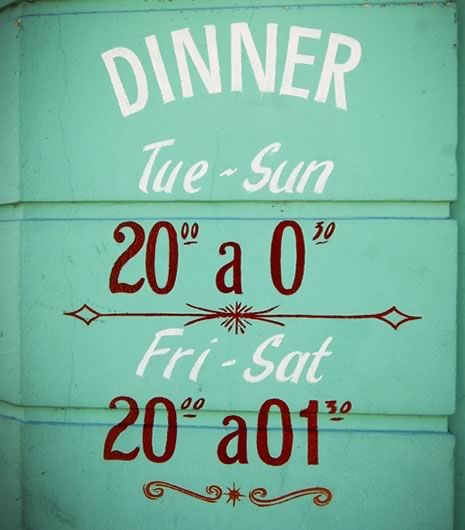 DINNER
Tue ~ Sun
20⁰⁰ a 0³⁰
Fri - Sat
20⁰⁰ a 01³⁰